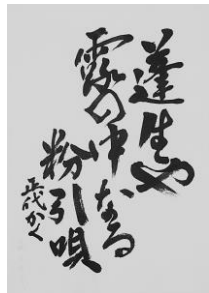 蓬生や
露の中なる
粉引唄
正代かく